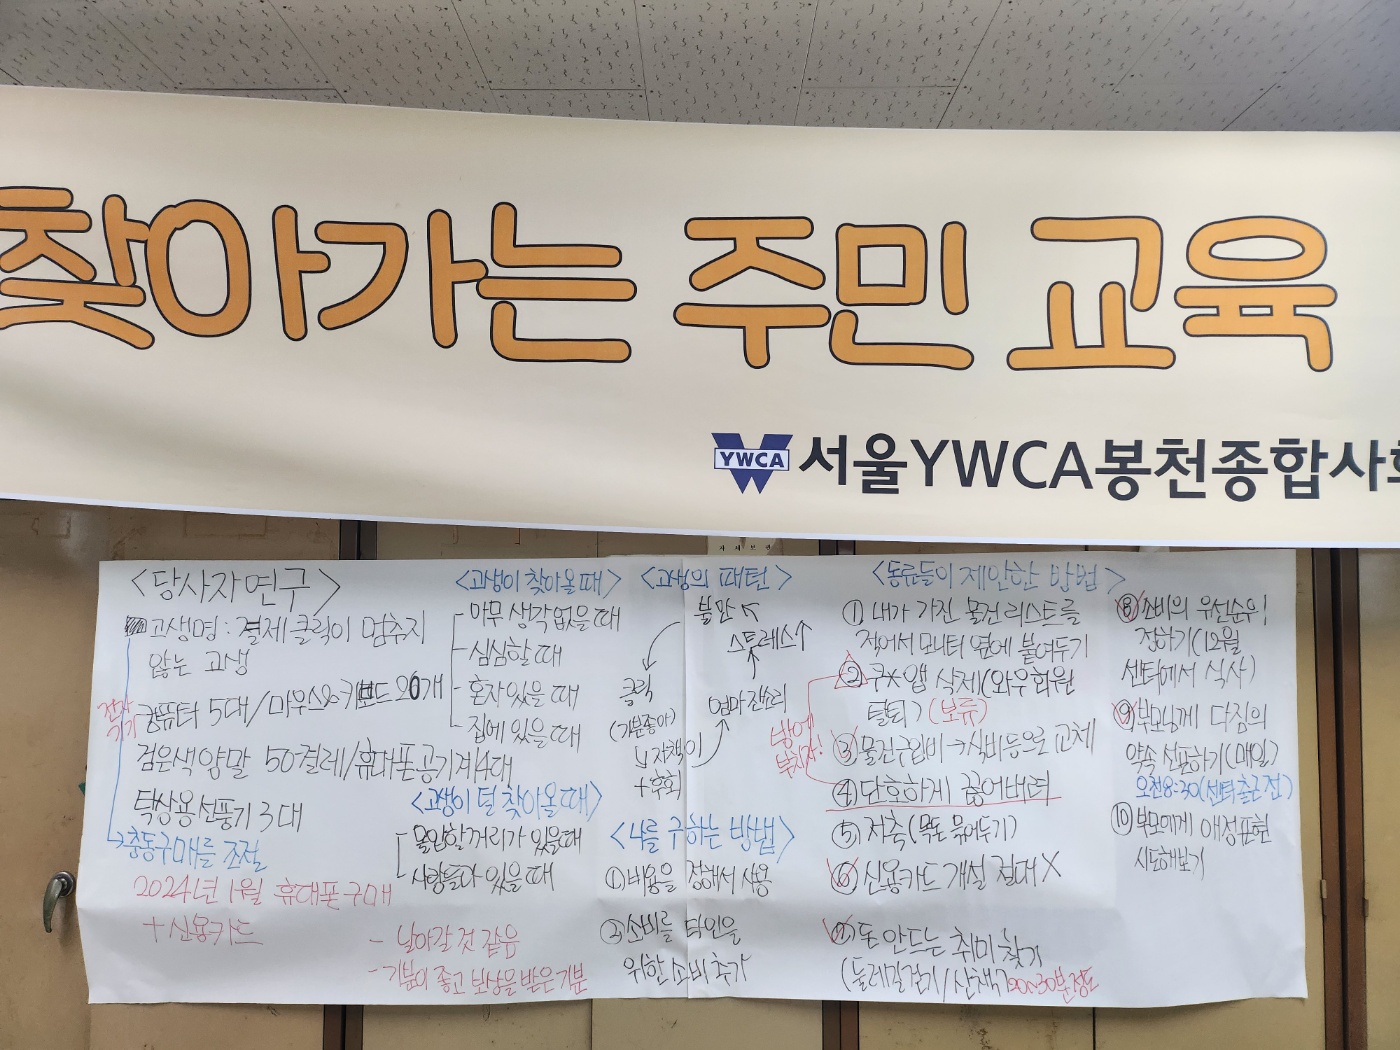 찾아가는 주민 교육
YWCA 서울YWCA봉천종합사회
<당사자연구>
고생명: 결제 클릭이 멈추지
않는 고생
컴퓨터 5대/마우스&키보드 20개
검은색 양말 50켤레/휴대폰공기계4대
탁상용선풍기 3대
→충동구매를 조절
2024년 1월 휴대폰 구매
+신용카드
<고생이 찾아올 때>
- 아무 생각없을 때
- 심심할 때
- 혼자 있을 때
- 집에 있을 때
<고생이 덜 찾아올 때>
- 몰입할거리가 있을때
- 사람들과 있을 때
- 날아갈 것 같음
- 기분이 좋고 보상을 받은 기분
<고생의 패턴>
불안
스트레스↑
엄마 잔소리
클릭
(기분좋아)
↳자책
+후회
<나를 구하는 방법>
① 비용을 정해서 사용
② 소비를 타인을
위한 소비 추가
<동료들이 제안한 방법>
① 내가 가진 물건 리스트를
적어서 모니터 옆에 붙여두기
② 쿠x앱 삭제(와우회원
탈퇴) (보류)
③ 물건구입비→식비등으로 교체
④ 단호하게 끊어버려
⑤ 저축(목돈 묶어두기)
⑥ 신용카드 개설 절대 X
⑦ 돈 안드는 취미 찾기
(둘레길걷기/산책) 20~30분정도
⑧ 소비의 우선순위
정하기(12월
센터에서 식사)
⑨ 부모님께 다짐의
약속 선포하기(매일)
오전8:30(센터 출근 전)
⑩ 부모에게 애정표현
시도해보기